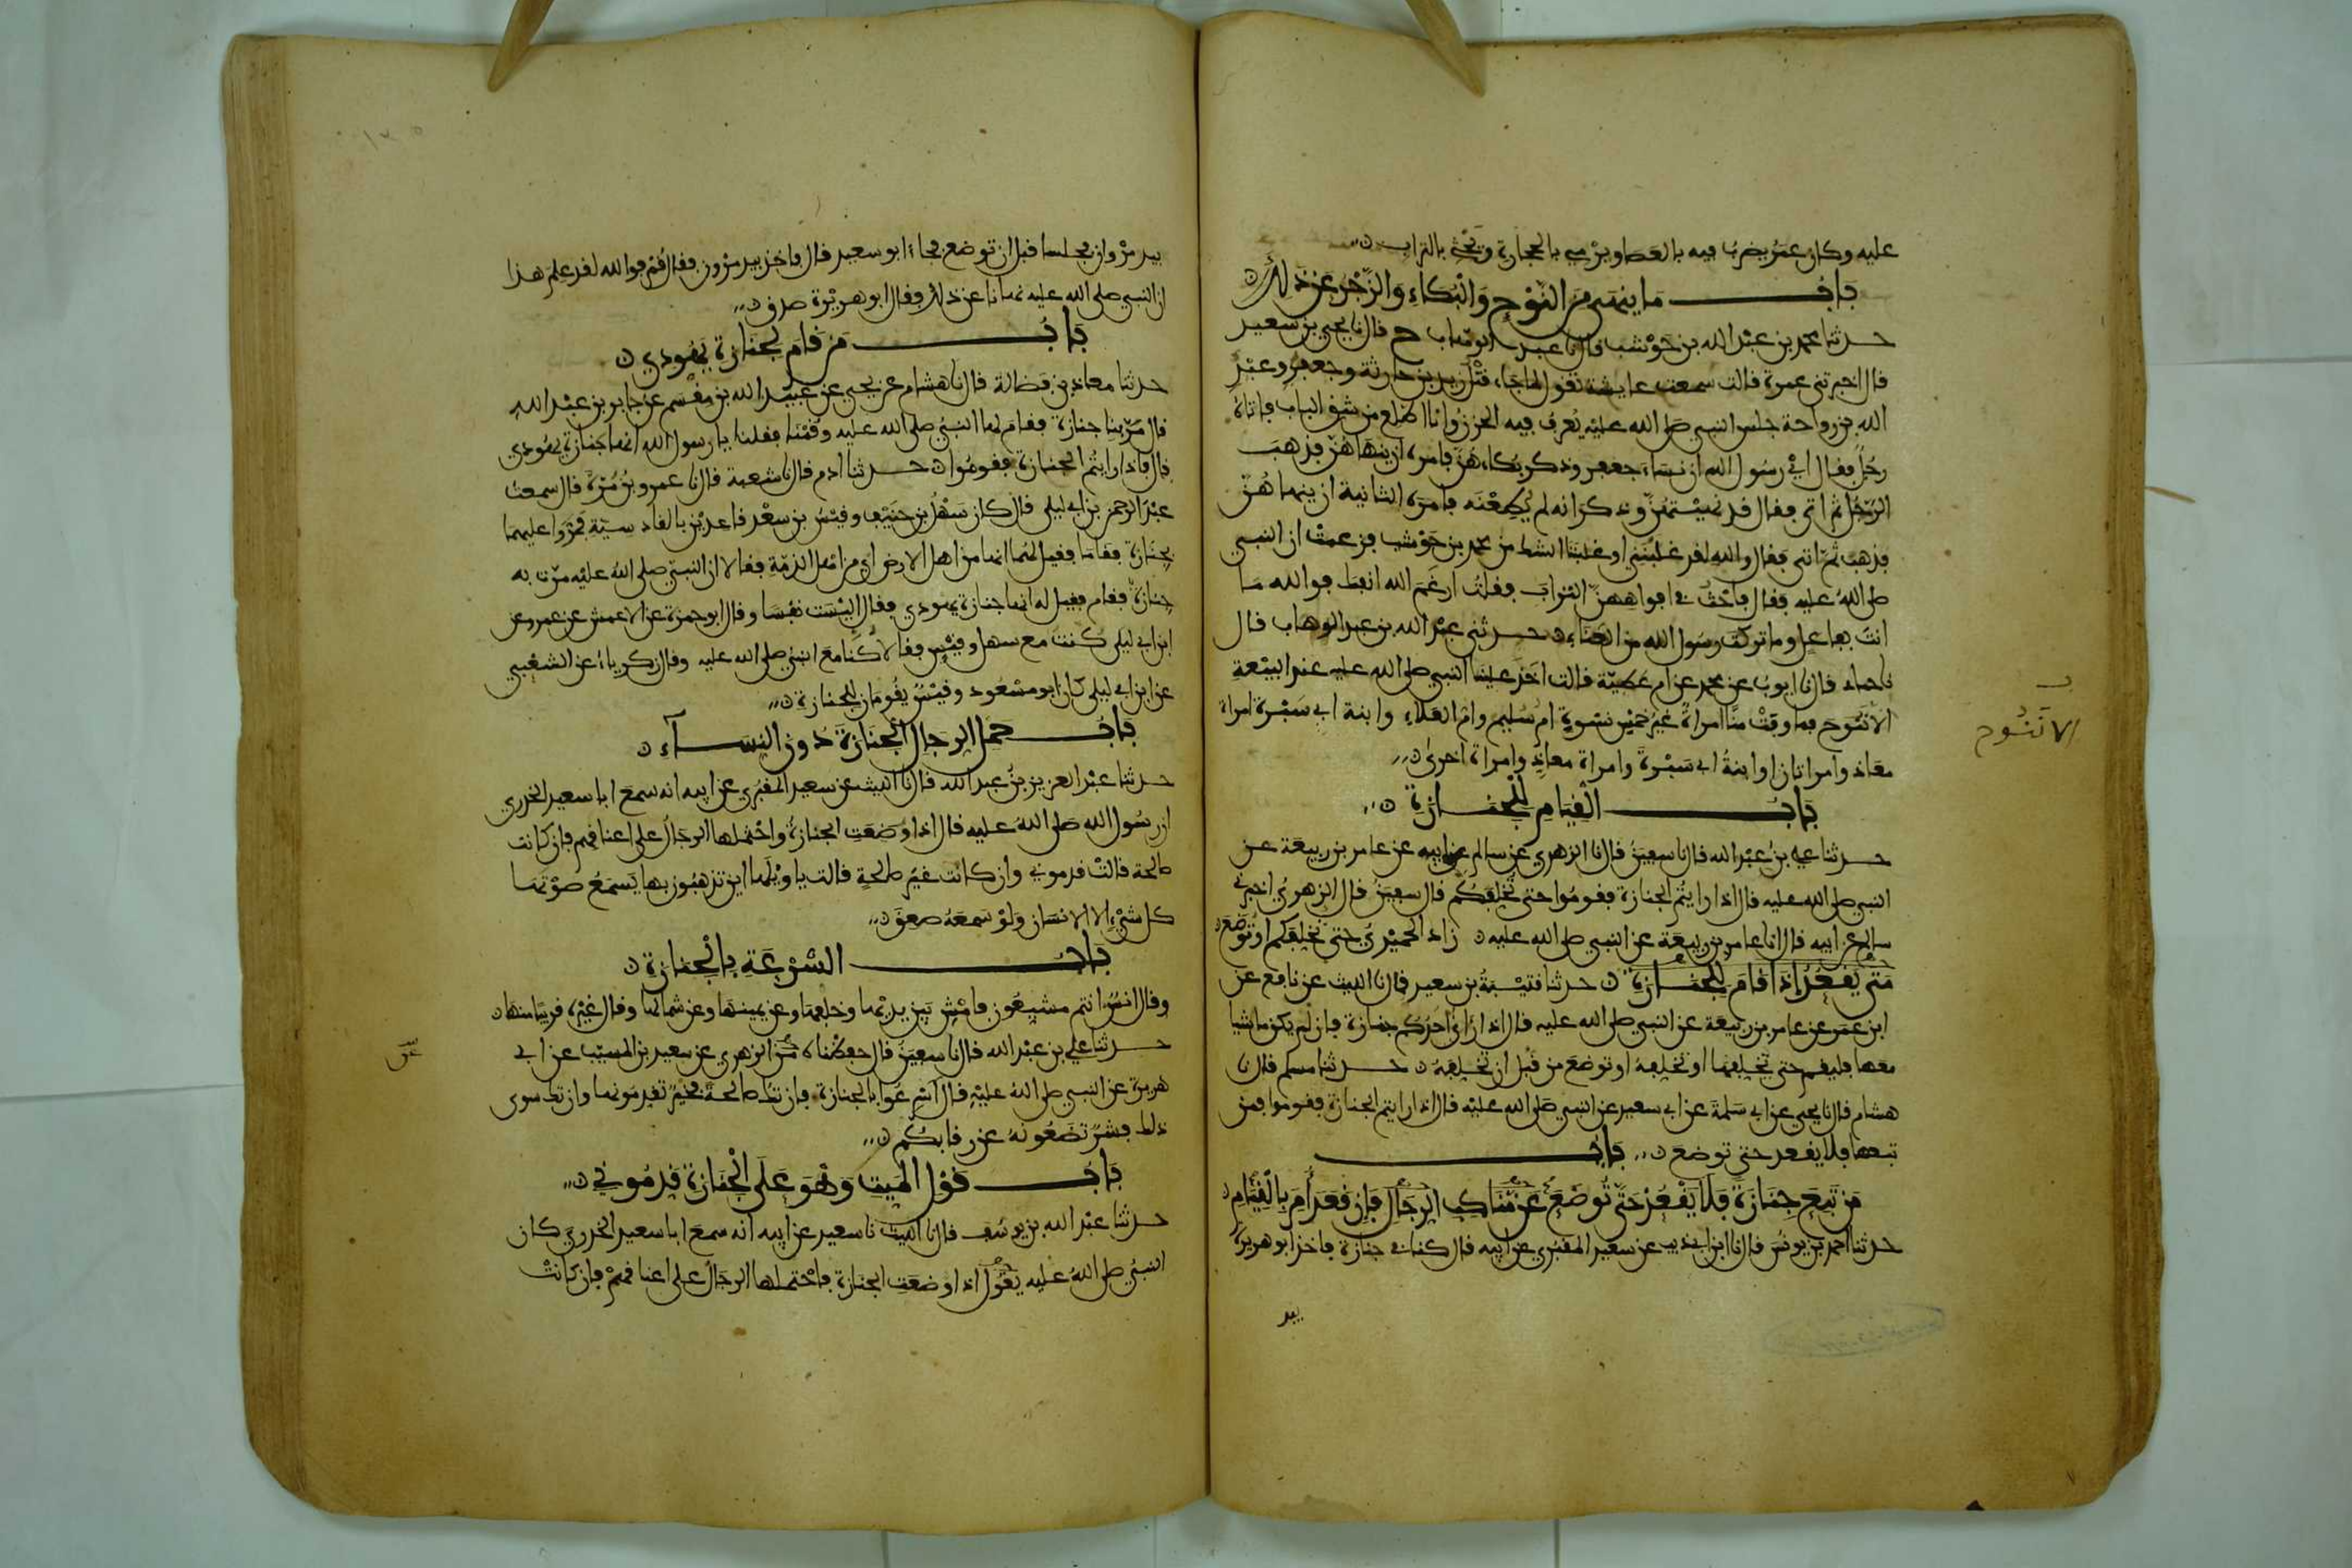 عليه وكان عمر يضرب فيه بالعصا ويرمي بالحجارة ويحثي بالتراب
باب ما ينهى من النوح والبكاء والزجر عن ذلك
حدثنا محمد بن عبد الله بن حوشب قال نا عبد الوهاب ح قال نا يحيى بن سعيد
قال اخبرتني عمرة قالت سمعت عايشة تقول لما جاء قتل زيد بن حارثة وجعفر وعبد
الله بن رواحة جلس النبي صلى الله عليه يعرف فيه الحزن وانا اطلع من شق الباب فاتاه
رجل فقال اي رسول الله ان نساء جعفر وذكر بكاءهن فامره ان ينهاهن فذهب
الرجل ثم اتى فقال قد نهيتهن وذكر انه لم يطعنه فامره الثانية ان ينهاهن
فذهب ثم اتى فقال والله لقد غلبنني او غلبننا الشك من محمد بن حوشب فزعمت ان النبي
صلى الله عليه فقال فاحث في افواههن التراب فقلت ارغم الله انفك فوالله ما
انت بفاعل وما تركت رسول الله من العناء حدثني عبد الله بن عبد الوهاب قال
نا حماد قال نا ايوب عن محمد عن ام عطية قالت اخذ علينا النبي صلى الله عليه عند البيعة
الا ننوح فما وفت منا امراة غير خمس نسوة ام سليم وام العلاء وابنة ابي سبرة امراة
الا ننوح
معاذ وامراتان او ابنة ابي سبرة وامراة معاذ وامراة اخرى
باب القيام للجنازة
حدثنا علي بن عبد الله قال نا سفين قال نا الزهري عن سالم عن ابيه عن عامر بن ربيعة عن
النبي صلى الله عليه قال اذا رايتم الجنازة فقوموا حتى تخلفكم قال سفين قال الزهري اخبرني
سالم عن ابيه قال انا عامر بن ربيعة عن النبي صلى الله عليه زاد الحميدي حتى تخلفكم او توضع
متى يقعد اذا قام للجنازة حدثنا قتيبة بن سعيد قال نا الليث عن نافع عن
ابن عمر عن عامر بن ربيعة عن النبي صلى الله عليه قال اذا راى احدكم جنازة فان لم يكن ماشيا
معها فليقم حتى يخلفها او تخلفه او توضع من قبل ان تخلفه حدثنا مسلم قال نا
هشام قال نا يحيى عن ابي سلمة عن ابي سعيد عن النبي صلى الله عليه قال اذا رايتم الجنازة فقوموا فمن
تبعها فلا يقعد حتى توضع باب
من تبع جنازة فلا يقعد حتى توضع عن مناكب الرجال فان قعد امر بالقيام
حدثنا احمد بن يونس قال نا ابن ابي ذيب عن سعيد المقبري عن ابيه قال كنا في جنازة فاخذ ابو هريرة
بيد
بيد مروان فجلسا قبل ان توضع فجاء ابو سعيد قال فاخذ بيد مرون فقال قم فوالله لقد علم هذا
ان النبي صلى الله عليه نهانا عن ذلك فقال ابو هريرة صدق
باب من قام لجنازة يهودي
حدثنا معاذ بن فضالة قال نا هشام عن يحيى عن عبيد الله بن مقسم عن جابر بن عبد الله
قال مر بنا جنازة فقام لها النبي صلى الله عليه وقمنا فقلنا يا رسول الله انها جنازة يهودي
قال فاذا رايتم الجنازة فقوموا حدثنا ادم قال نا شعبة قال نا عمرو بن مرة قال سمعت
عبد الرحمن بن ابي ليلى قال كان سهل بن حنيف وقيس بن سعد قاعدين بالقادسية فمروا عليهما
بجنازة فقاما فقيل لهما انها من اهل الارض اي من اهل الذمة فقالا ان النبي صلى الله عليه مرت به
جنازة فقام فقيل له انها جنازة يهودي فقال اليست نفسا وقال ابو حمزة عن الاعمش عن عمرو عن
ابن ابي ليلى كنت مع سهل وقيس فقالا كنا مع النبي صلى الله عليه وقال زكرياء عن الشعبي
عن ابن ابي ليلى كان ابو مسعود وقيس يقومان للجنازة
باب حمل الرجال الجنازة دون النساء
حدثنا عبد العزيز بن عبد الله قال نا الليث عن سعيد المقبري عن ابيه انه سمع ابا سعيد الخدري
ان رسول الله صلى الله عليه قال اذا وضعت الجنازة واحتملها الرجال على اعناقهم فان كانت
صالحة قالت قدموني وان كانت غير صالحة قالت يا ويلها اين تذهبون بها يسمع صوتها
كل شيء الا الانسان ولو سمعه صعق
باب السرعة بالجنازة
وقال انس انتم مشيعون فامش بين يديها وخلفها وعن يمينها وعن شمالها وقال غيره قريبا منها
حدثنا علي بن عبد الله قال نا سفين قال حفظناه من الزهري عن سعيد بن المسيب عن ابي
عن
هريرة عن النبي صلى الله عليه قال اسرعوا بالجنازة فان تك صالحة فخير تقدمونها وان تك سوى
ذلك فشر تضعونه عن رقابكم
باب قول الميت وهو على الجنازة قدموني
حدثنا عبد الله بن يوسف قال نا الليث نا سعيد عن ابيه انه سمع ابا سعيد الخدري كان
النبي صلى الله عليه يقول اذا وضعت الجنازة فاحتملها الرجال على اعناقهم فان كانت